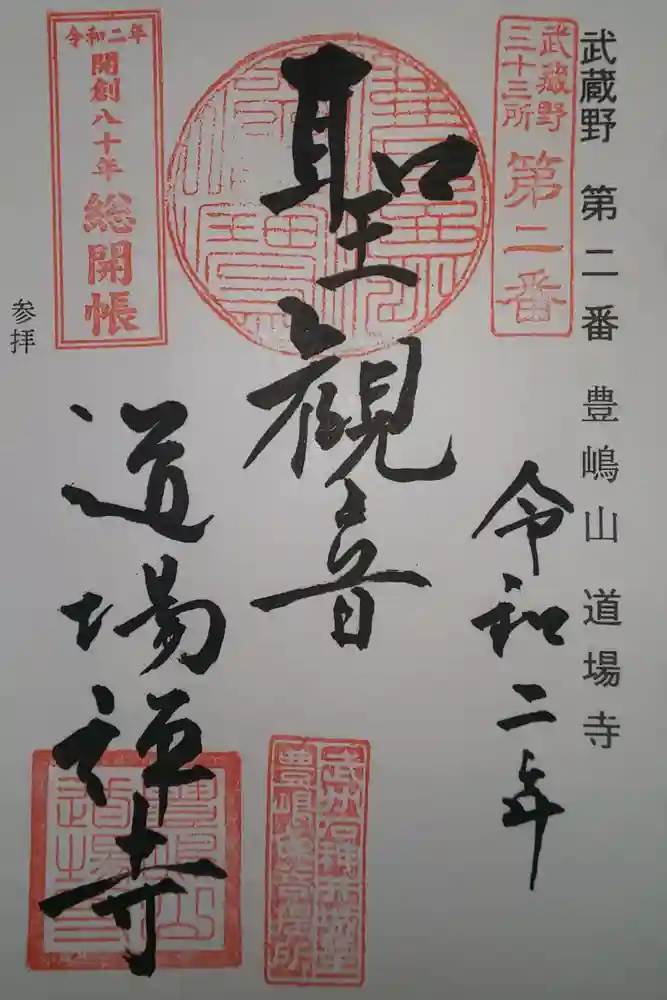 武蔵野 第二番 豊嶋山 道場寺
武蔵野
三十三所
第二番
令和二年
聖観音
道場禅寺
令和二年
開創八十年
総開帳
参拝